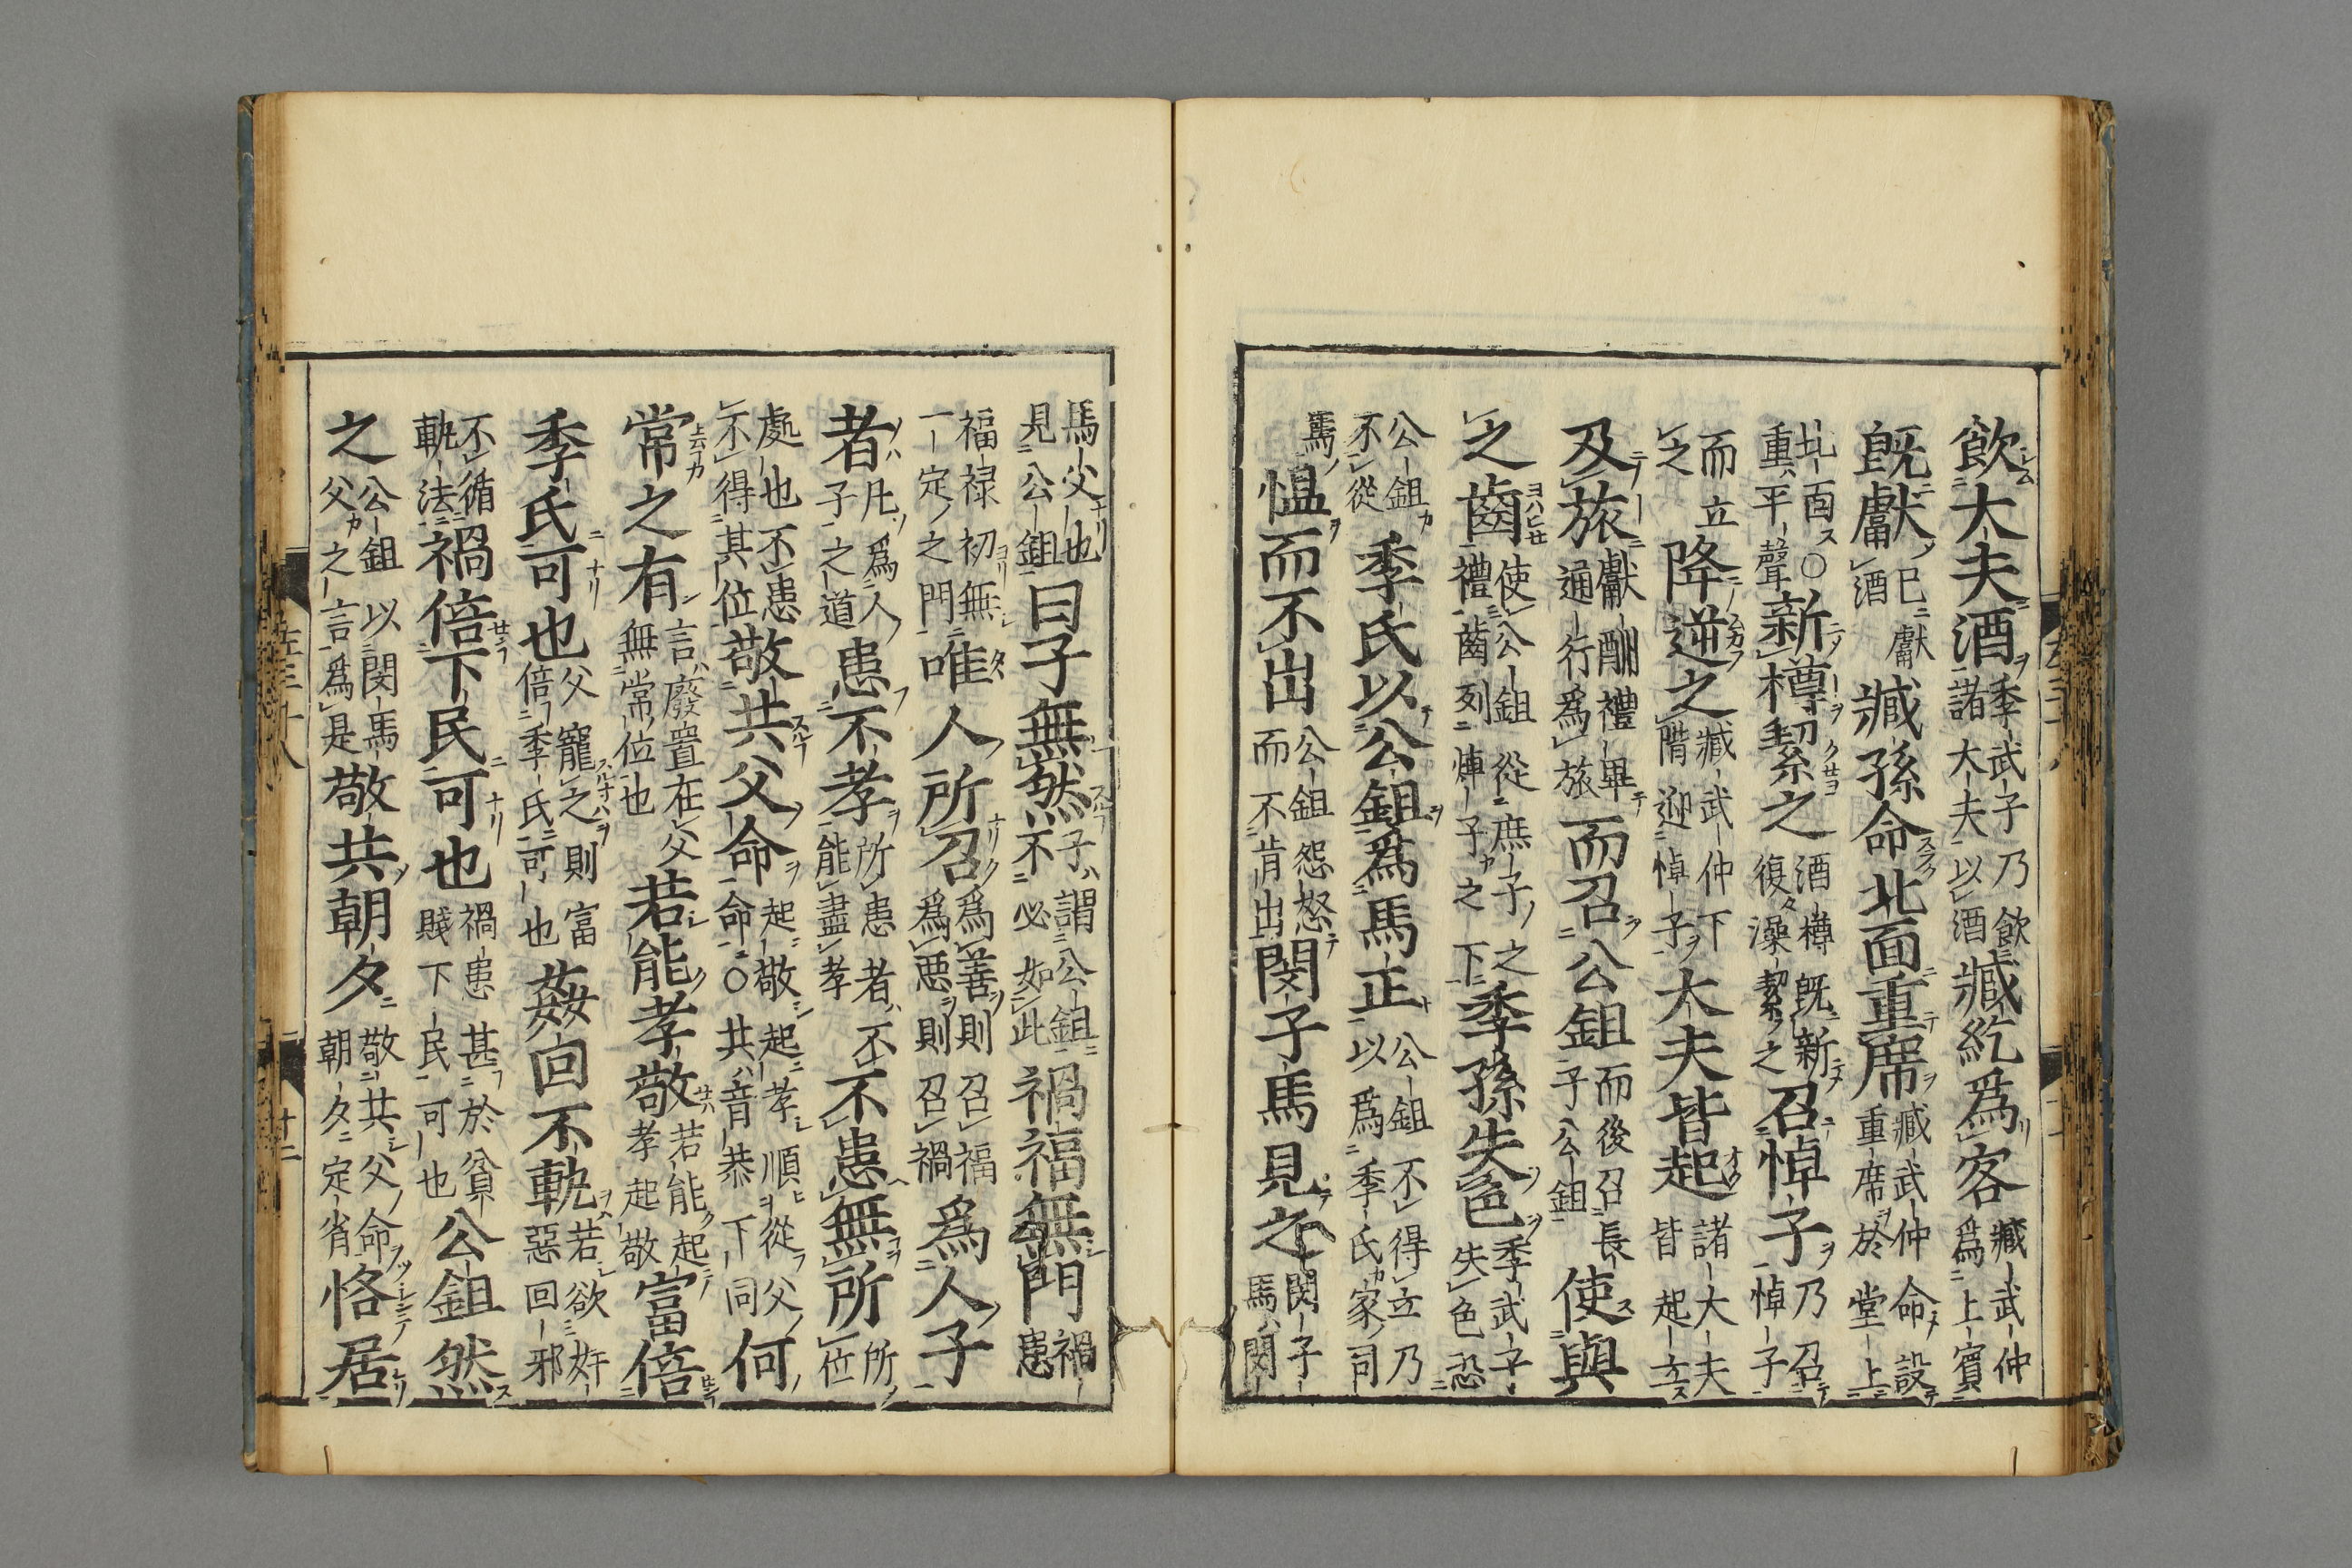 飲大夫酒季武子乃飲諸大夫以酒臧紇爲客臧武仲爲上賓
既獻已獻酒臧孫命北面重席臧武仲命設重席於堂上
北面○重平聲新樽絜之酒樽既新復澡絜之召悼子乃召悼子
而立之降逆之臧武仲下階迎悼子大夫皆起諸大夫皆起立
及旅獻酬禮畢通行爲旅而召公鉏而後召長子公鉏使與
之齒使公鉏從庶子之禮齒列悼子之下季孫失色季武子失色恐
公鉏不從季氏以公鉏爲馬正公鉏不得立乃以爲季氏家司
馬慍而不出公鉏怨怒而不肯出閔子馬見之閔子馬閔
馬父也見公鉏曰子無然子謂公鉏不必如此禍福無門禍患
福祿初無一定之門唯人所召爲善則召福爲惡則召禍爲人子
者凡爲人子之道患不孝所患者不能盡孝不患無所所位
處也不患不得其位敬共父命起敬起孝順從父命○共音恭下同何
常之有言廢置在父無常位也若能孝敬若能起孝起敬富倍
季氏可也父寵之則富倍季氏可也姦回不軌若欲奸惡回邪
不循軌法禍倍下民可也禍患甚於貧賤下民可也公鉏然
之公鉏以閔馬父之言爲是敬共朝夕敬共父命朝夕定省恪居
左三十八 十二